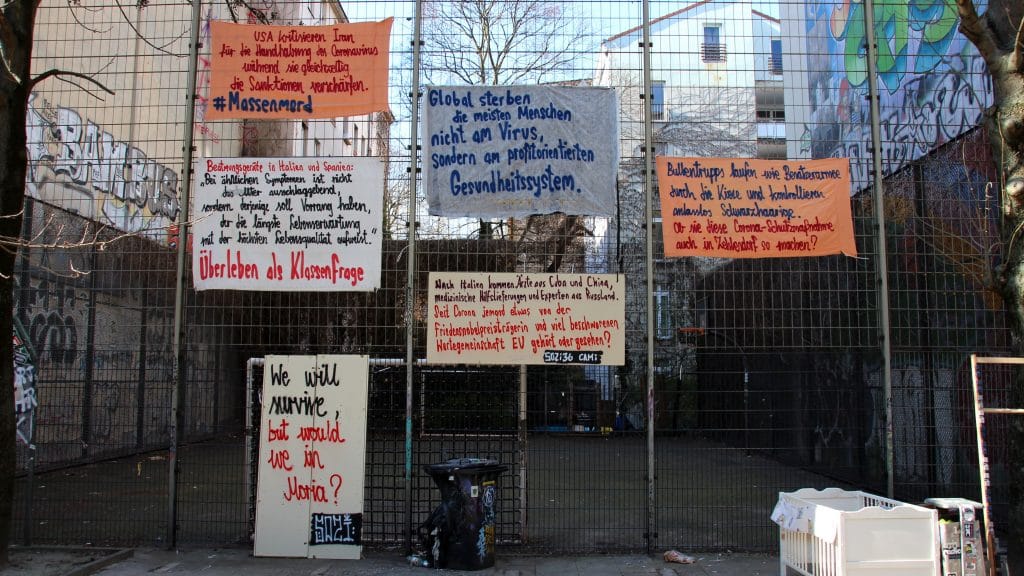 USA kritisieren Iran
für die Handhabung des Coronavirus
während sie gleichzeitig
die Sanktionen verschärfen.
#Massenmord
Global sterben
die meisten Menschen
nicht am Virus,
sondern am profitorientierten
Gesundheitssystem.
Beatmungsgeräte in Italien und Spanien:
„Bei ähnlichen Symptomen ist nicht
das Alter ausschlaggebend,
sondern derjenige soll Vorrang haben,
der die längste Lebenserwartung
mit der höchsten Lebensqualität aufweist."
Überleben als Klassenfrage
Bullentrupps laufen wie Besatzerarmee
durch die Kieze und kontrollieren
anlasslos Schwarzhaarige.
Ob sie diese Corona-Schutzmaßnahme
auch in Zehlendorf so machen?
Nach Italien kommen Ärzte aus Cuba und China,
medizinische Hilfslieferungen und Experten aus Russland.
Seit Corona jemand etwas von der
Friedensnobelpreisträgerin und viel beschworenen
Wertegemeinschaft EU gehört oder gesehen?
SO2:36 CAMI:
We will
survive,
but would
we in
Moria?